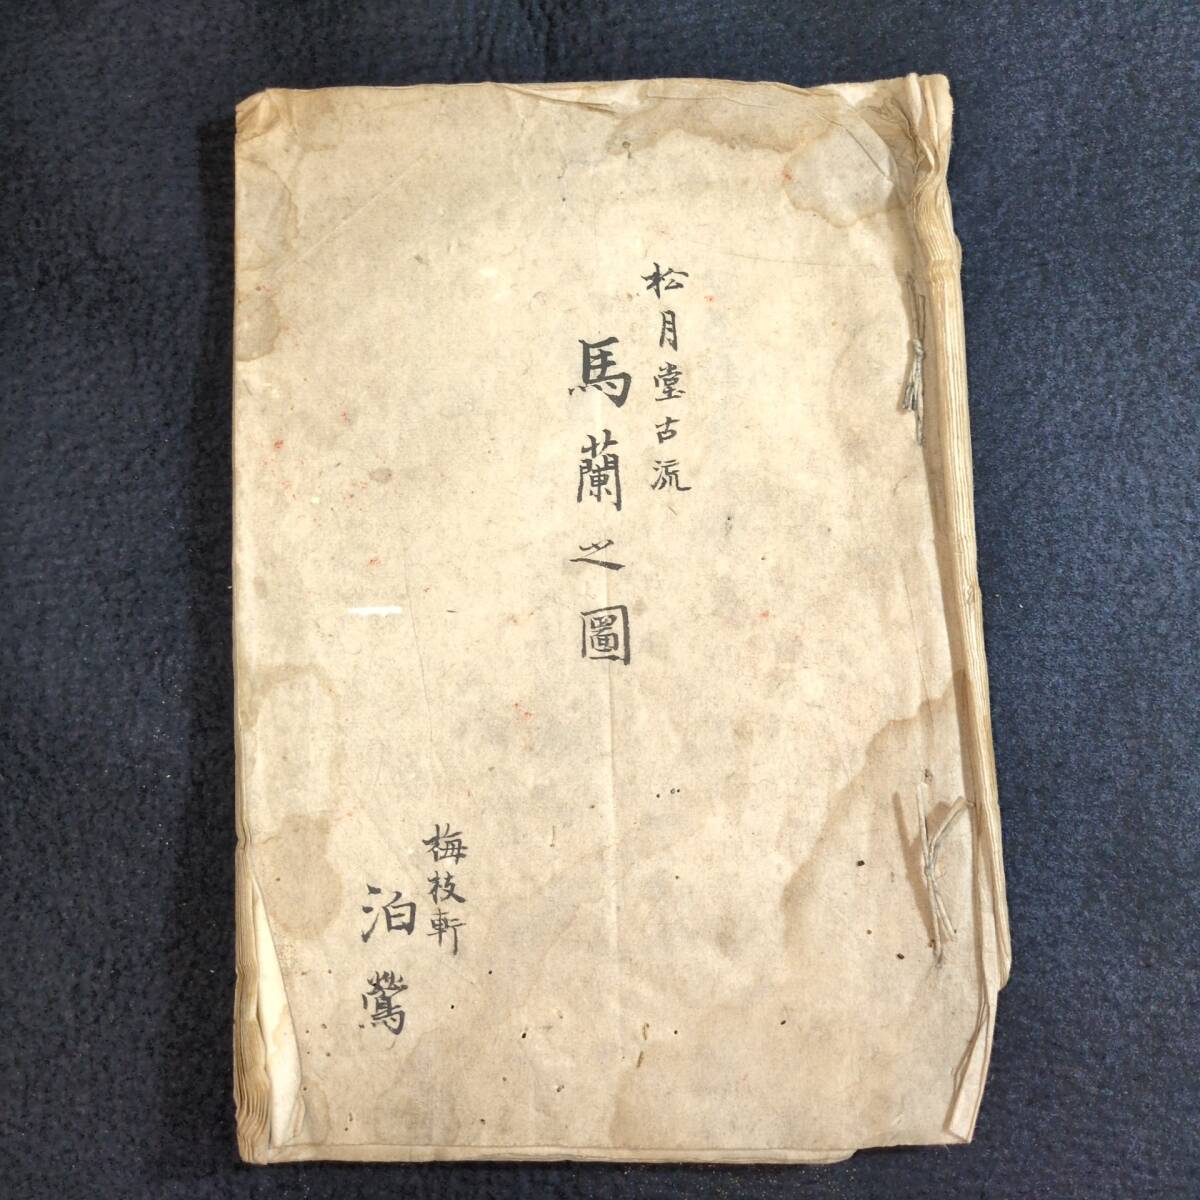 松月堂古流
馬蘭之圖
梅枝軒
泊鶯